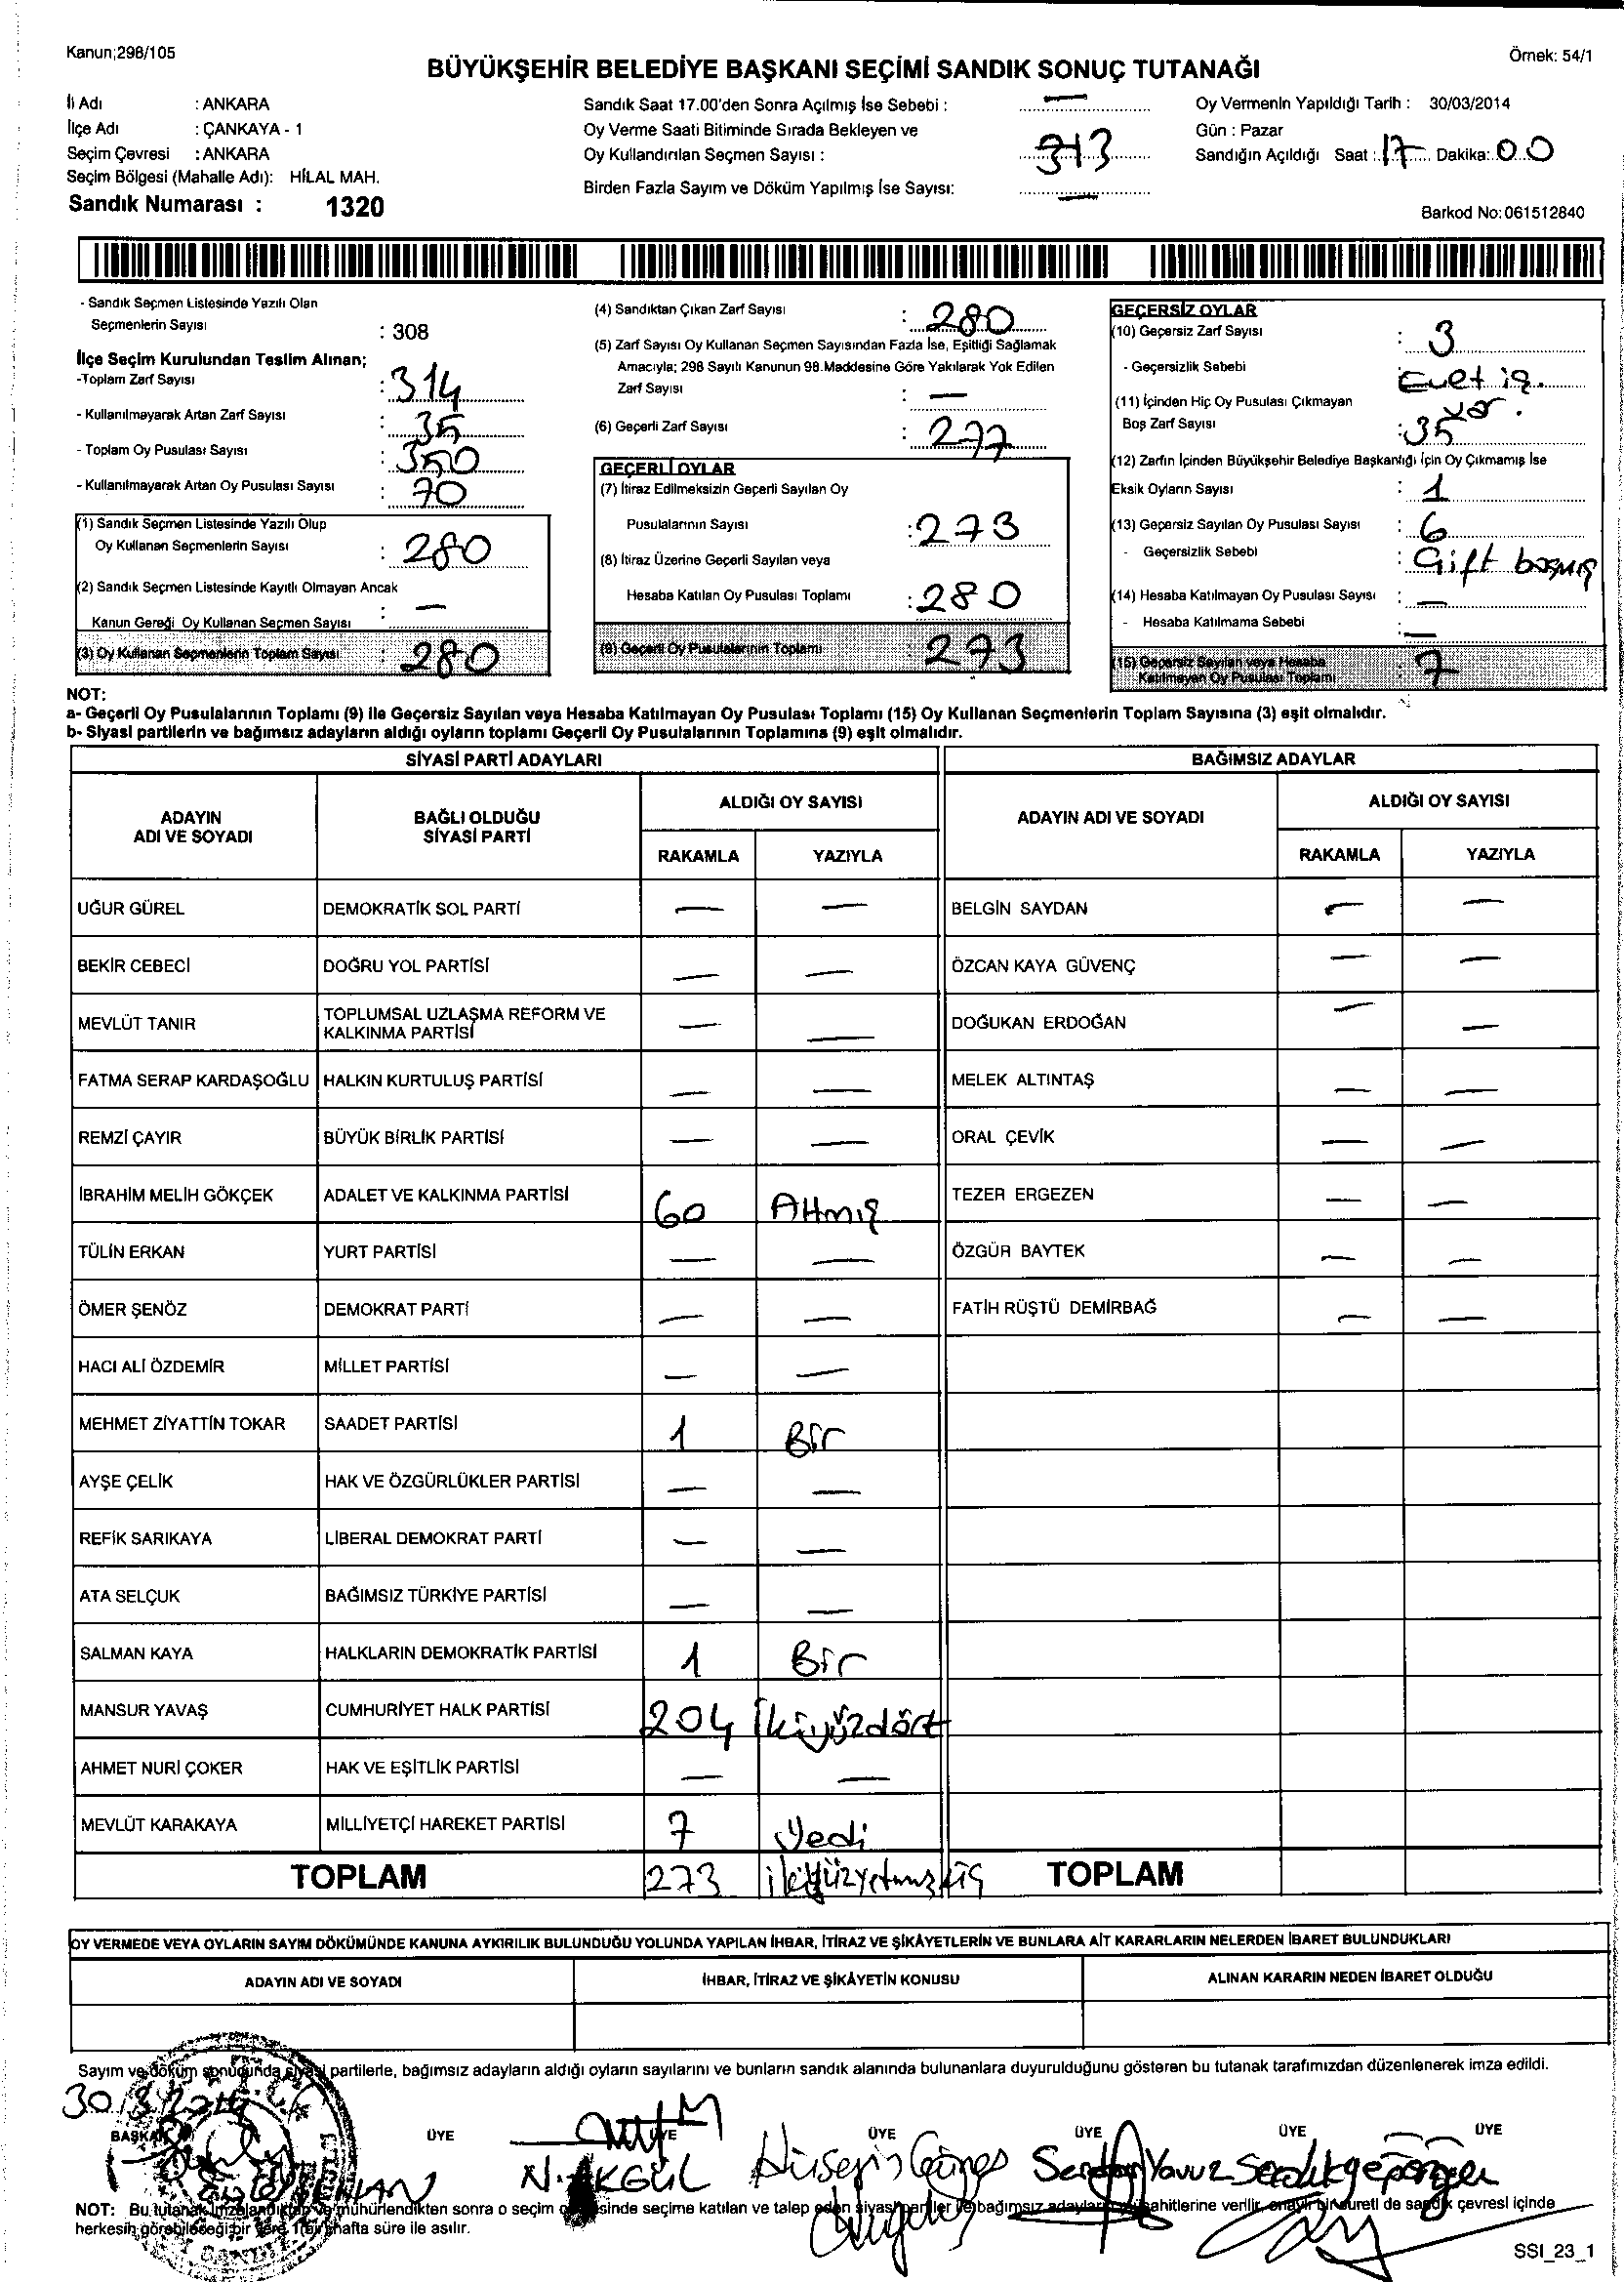 Kanun;298/105
Örnek: 54/1
BÜYÜKŞEHİR BELEDİYE BAŞKANI SEÇİMİ SANDIK SONUÇ TUTANAĞI
İli Adı : ANKARA
İlçe Adı : ÇANKAYA - 1
Seçim Çevresi : ANKARA
Seçim Bölgesi (Mahalle Adı): HİLAL MAH.
Sandık Numarası : 1320
Sandık Saat 17.00'den Sonra Açılmış İse Sebebi : —
Oy Verme Saati Bitiminde Sırada Bekleyen ve
Oy Kullandırılan Seçmen Sayısı : 313
Birden Fazla Sayım ve Döküm Yapılmış İse Sayısı: —
Oy Vermenin Yapıldığı Tarih : 30/03/2014
Gün : Pazar
Sandığın Açıldığı Saat : 17 Dakika: 00
Barkod No: 061512840
- Sandık Seçmen Listesinde Yazılı Olan
Seçmenlerin Sayısı : 308
İlçe Seçim Kurulundan Teslim Alınan;
-Toplam Zarf Sayısı : 314
- Kullanılmayarak Artan Zarf Sayısı : 35
- Toplam Oy Pusulası Sayısı : 350
- Kullanılmayarak Artan Oy Pusulası Sayısı : 70
(1) Sandık Seçmen Listesinde Yazılı Olup
Oy Kullanan Seçmenlerin Sayısı : 280
(2) Sandık Seçmen Listesinde Kayıtlı Olmayan Ancak
Kanun Gereği Oy Kullanan Seçmen Sayısı : —
(3) Oy Kullanan Seçmenlerin Toplam Sayısı : 280
(4) Sandıktan Çıkan Zarf Sayısı : 280
(5) Zarf Sayısı Oy Kullanan Seçmen Sayısından Fazla İse, Eşitliği Sağlamak
Amacıyla; 298 Sayılı Kanunun 98.Maddesine Göre Yakılarak Yok Edilen
Zarf Sayısı : —
(6) Geçerli Zarf Sayısı : 277
GEÇERLİ OYLAR
(7) İtiraz Edilmeksizin Geçerli Sayılan Oy
Pusulalarının Sayısı : 273
(8) İtiraz Üzerine Geçerli Sayılan veya
Hesaba Katılan Oy Pusulası Toplamı : 280
(9) Geçerli Oy Pusulalarının Toplamı 273
GEÇERSİZ OYLAR
(10) Geçersiz Zarf Sayısı : 3
- Geçersizlik Sebebi : Evet iş.
var.
(11) İçinden Hiç Oy Pusulası Çıkmayan
Boş Zarf Sayısı : 35
(12) Zarfın İçinden Büyükşehir Belediye Başkanlığı İçin Oy Çıkmamış İse
Eksik Oyların Sayısı : 1
(13) Geçersiz Sayılan Oy Pusulası Sayısı : 6
- Geçersizlik Sebebi : Çift basmış
(14) Hesaba Katılmayan Oy Pusulası Sayısı : —
- Hesaba Katılmama Sebebi : —
(15) Geçersiz Sayılan veya Hesaba
Katılmayan Oy Pusulası Toplamı : 7
NOT:
a- Geçerli Oy Pusulalarının Toplamı (9) ile Geçersiz Sayılan veya Hesaba Katılmayan Oy Pusulası Toplamı (15) Oy Kullanan Seçmenlerin Toplam Sayısına (3) eşit olmalıdır.
b- Siyasi partilerin ve bağımsız adayların aldığı oyların toplamı Geçerli Oy Pusulalarının Toplamına (9) eşit olmalıdır.
SİYASİ PARTİ ADAYLARI BAĞIMSIZ ADAYLAR
ADAYIN
ADI VE SOYADI
BAĞLI OLDUĞU
SİYASİ PARTİ
ALDIĞI OY SAYISI
RAKAMLA YAZIYLA
ADAYIN ADI VE SOYADI
ALDIĞI OY SAYISI
RAKAMLA YAZIYLA
UĞUR GÜREL DEMOKRATİK SOL PARTİ — — BELGİN SAYDAN — —
BEKİR CEBECİ DOĞRU YOL PARTİSİ — — ÖZCAN KAYA GÜVENÇ — —
MEVLÜT TANIR TOPLUMSAL UZLAŞMA REFORM VE
KALKINMA PARTİSİ — — DOĞUKAN ERDOĞAN — —
FATMA SERAP KARDAŞOĞLU HALKIN KURTULUŞ PARTİSİ — — MELEK ALTINTAŞ — —
REMZİ ÇAYIR BÜYÜK BİRLİK PARTİSİ — — ORAL ÇEVİK — —
İBRAHİM MELİH GÖKÇEK ADALET VE KALKINMA PARTİSİ 60 Altmış TEZER ERGEZEN — —
TÜLİN ERKAN YURT PARTİSİ — — ÖZGÜR BAYTEK — —
ÖMER ŞENÖZ DEMOKRAT PARTİ — — FATİH RÜŞTÜ DEMİRBAĞ — —
HACI ALİ ÖZDEMİR MİLLET PARTİSİ — —
MEHMET ZİYATTİN TOKAR SAADET PARTİSİ 1 Bir
AYŞE ÇELİK HAK VE ÖZGÜRLÜKLER PARTİSİ — —
REFİK SARIKAYA LİBERAL DEMOKRAT PARTİ — —
ATA SELÇUK BAĞIMSIZ TÜRKİYE PARTİSİ — —
SALMAN KAYA HALKLARIN DEMOKRATİK PARTİSİ 1 Bir
MANSUR YAVAŞ CUMHURİYET HALK PARTİSİ 204 İkiyüzdört
AHMET NURİ ÇOKER HAK VE EŞİTLİK PARTİSİ — —
MEVLÜT KARAKAYA MİLLİYETÇİ HAREKET PARTİSİ 7 Yedi
TOPLAM 273 ikiyüzyetmişüç TOPLAM
OY VERMEDE VEYA OYLARIN SAYIM DÖKÜMÜNDE KANUNA AYKIRILIK BULUNDUĞU YOLUNDA YAPILAN İHBAR, İTİRAZ VE ŞİKÂYETLERİN VE BUNLARA AİT KARARLARIN NELERDEN İBARET BULUNDUKLARI
ADAYIN ADI VE SOYADI İHBAR, İTİRAZ VE ŞİKÂYETİN KONUSU ALINAN KARARIN NEDEN İBARET OLDUĞU
Sayım ve döküm sonucunda siyasi partilerle, bağımsız adayların aldığı oyların sayılarını ve bunların sandık alanında bulunanlara duyurulduğunu gösteren bu tutanak tarafımızdan düzenlenerek imza edildi.
30/3/2014
BAŞKAN ÜYE ÜYE ÜYE ÜYE ÜYE ÜYE
N. AKGÜL Hüseyin Güneş Serdar Yavuz
NOT: Bu tutanak imzalandıktan ve mühürlendikten sonra o seçim çevresinde seçime katılan ve talep eden siyasi partiler ile bağımsız adayların müşahitlerine verilir, onaylı bir sureti de sandık çevresi içinde
herkesin görebileceği bir yere 1 (bir) hafta süre ile asılır.
SSI_23_1